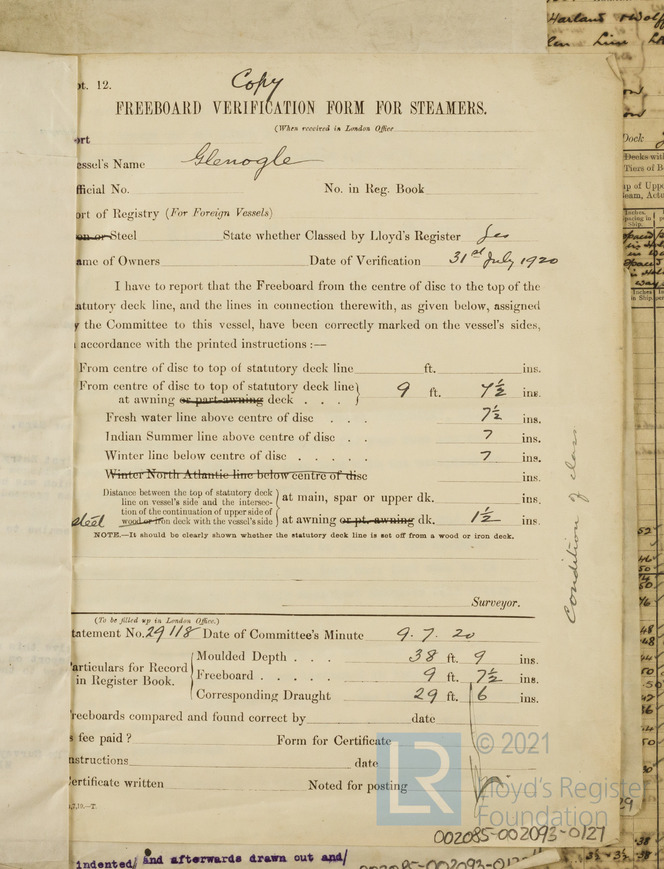 Harland & Wolff
Len Line
pt. 12.
Copy
FREEBOARD VERIFICATION FORM FOR STEAMERS.
(When received in London Office
ort
essel's Name Glenogle
fficial No. No. in Reg. Book
ort of Registry (For Foreign Vessels)
on or Steel State whether Classed by Lloyd's Register Yes
ame of Owners Date of Verification 31st July 1920
I have to report that the Freeboard from the centre of disc to the top of the
atutory deck line, and the lines in connection therewith, as given below, assigned
y the Committee to this vessel, have been correctly marked on the vessel's sides,
accordance with the printed instructions :—
From centre of disc to top of statutory deck line ft. ins.
From centre of disc to top of statutory deck line
at awning or part-awning deck . . . 9 ft. 7½ ins.
Fresh water line above centre of disc . . . 7½ ins.
Indian Summer line above centre of disc . . 7 ins.
Winter line below centre of disc . . . . . 7 ins.
Winter North Atlantic line below centre of disc ins.
Distance between the top of statutory deck
line on vessel's side and the intersec- at main, spar or upper dk. ins.
tion of the continuation of upper side of
steel wood or iron deck with the vessel's side at awning or pt. awning dk. 1½ ins.
NOTE.—It should be clearly shown whether the statutory deck line is set off from a wood or iron deck.
Condition of class
Surveyor.
(To be filled up in London Office.)
tatement No. 29118 Date of Committee's Minute 9.7.20
articulars for Record
in Register Book.
Moulded Depth . . . 38 ft. 9 ins.
Freeboard . . . . . 9 ft. 7½ ins.
Corresponding Draught 29 ft. 6 ins.
reeboards compared and found correct by date
s fee paid ? Form for Certificate
nstructions date
ertificate written Noted for posting
LR
© 2021
Lloyd's Register
Foundation
002085-002093-0127
indented/ and afterwards drawn out and/